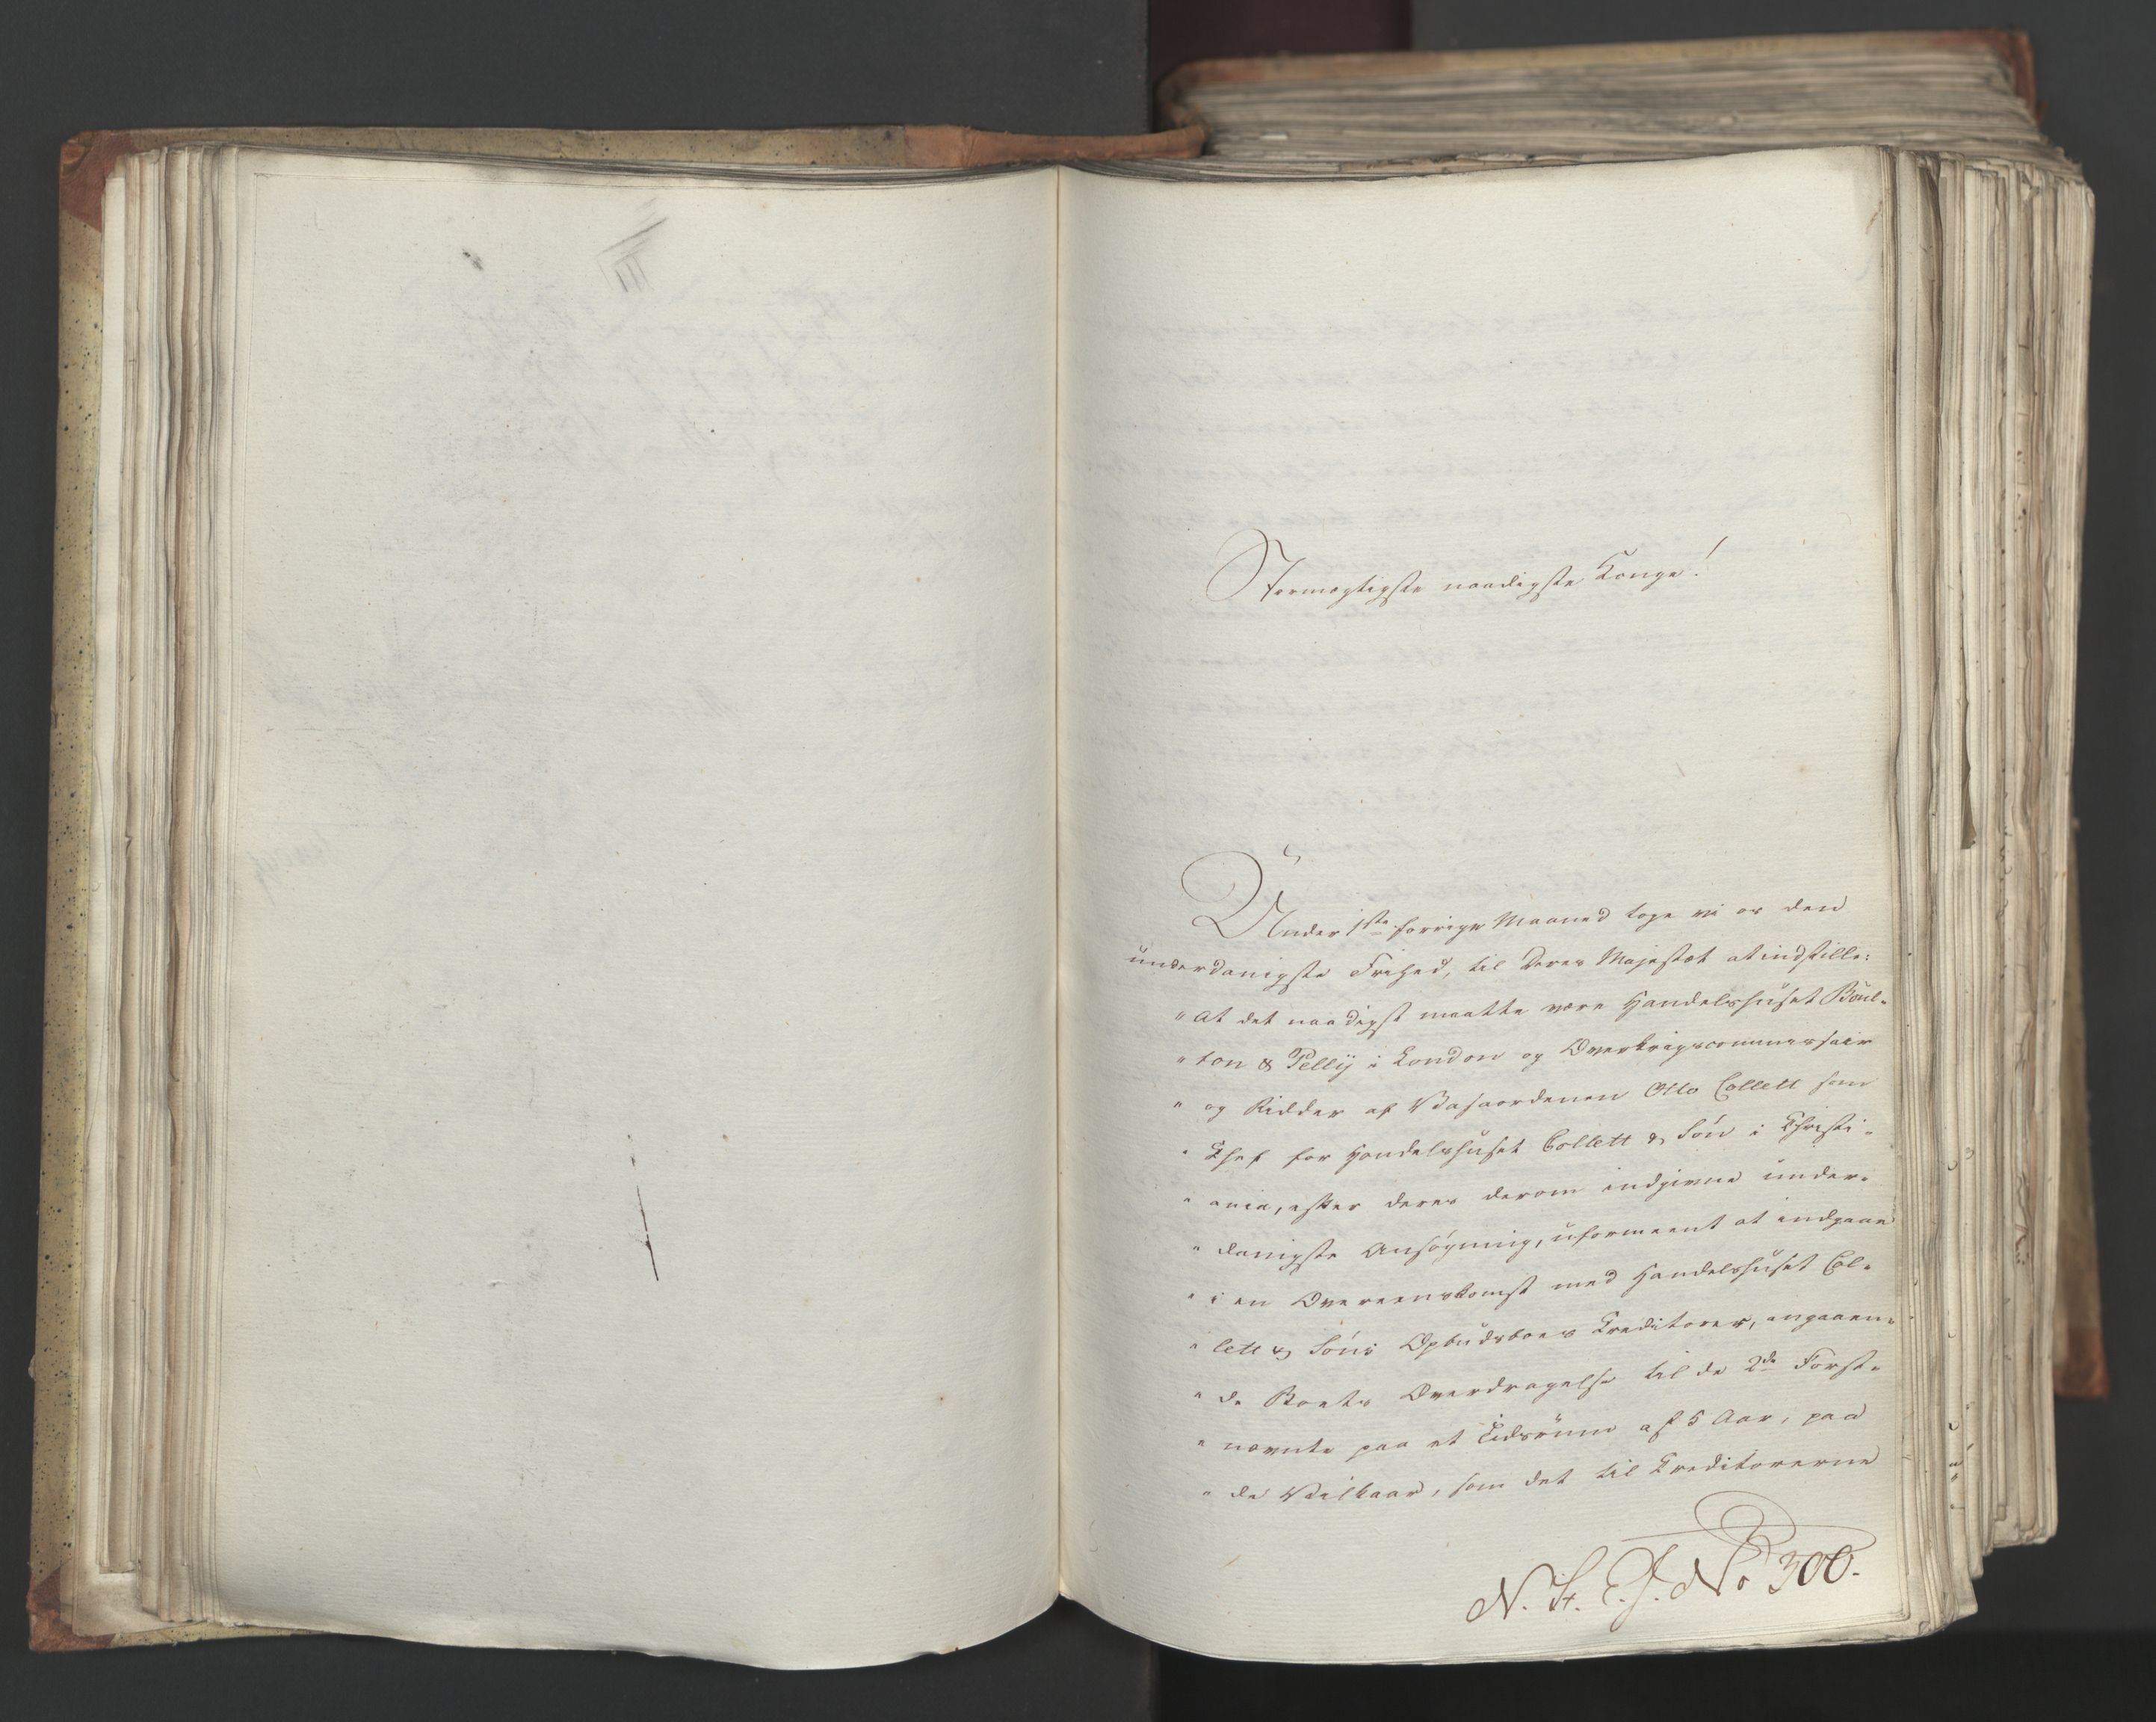 Stormægtigste naadigste Konge!
Under 1ste forrige Maaned toge vi os den
underdanigste Frihed, til Deres Majestæt at indstille:
"At det naadigst maatte være Handelshuset Boul-
"ton & Pellÿ i London og Overkrigscommissair
"og Ridder af Vasaordenen Otto Collett som
"Chef for Handelshuset Collett & Søn i Christi-
"ania, efter deres derom indgivne under-
"danigste Ansøgning, uformeent at indgaae
"i en Overeenskomst med Handelshuset Col-
"lett & Søns Opbudsboes Creditorer, angaaen-
"de Boets Overdragelse til de 2de Først-
"nævnte paa et Tidsrum af 5 Aar, paa
"de Vilkaar, som det til Creditorerne
N. H. C. J. No 300.